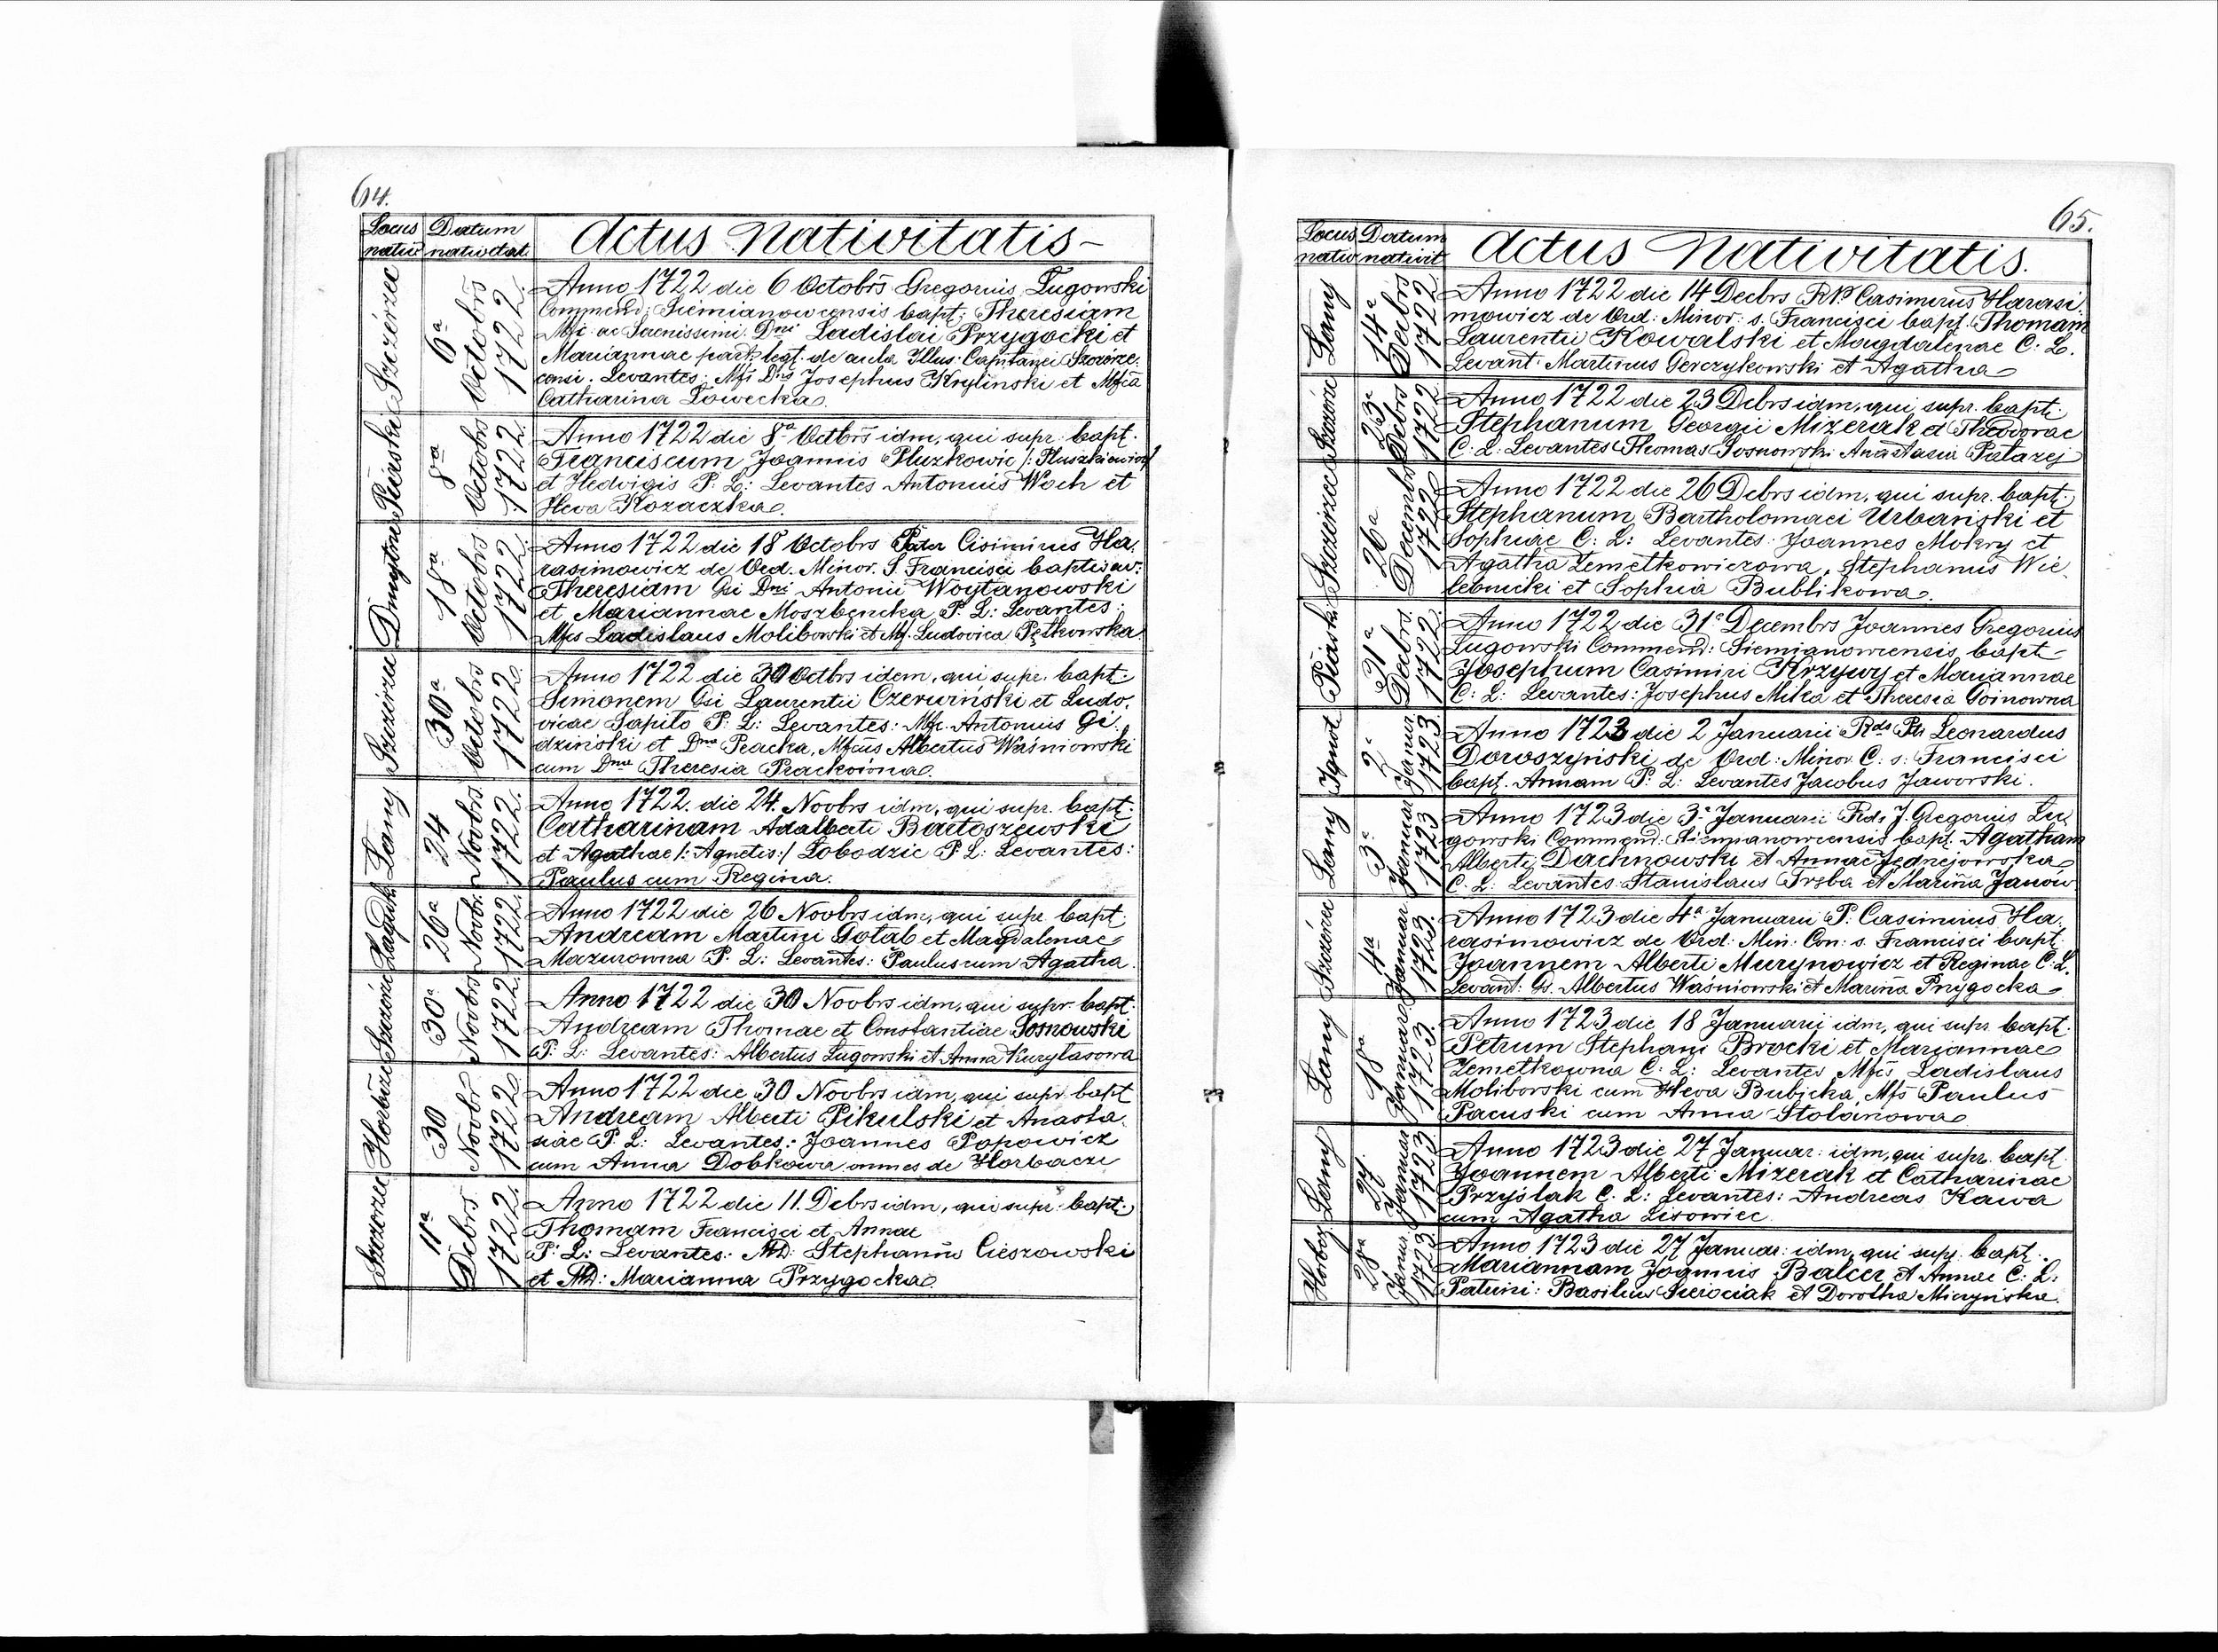 64.
Locus nativ. Datum nativitat. Actus Nativitatis
Szczérzec 6a Octobrs 1722.
Anno 1722 die 6 Octobrs Gregorius Ługowski
Commend: Siemianowcensis bapt: Theresiam
Mfci ac Dni Ladislai Przygocki et
Mariannae de aula Illus: Capitanei
Levantes: Mfs Dns Josephus Krylinski et Mfca
Catharina Łowecka.
Piaski 8a Octobrs 1722.
Anno 1722 die 8a Octbrs idm, qui supr. bapt.
Franciscum Joannis Pluzkowic /: Pluszkiewicz
et Hedvigis P: L: Levantes Antonius Woch et
Heva Kozaczka.
Dmytrze 18a Octobrs 1722.
Anno 1722 die 18 Octobrs Pater Cisimirus Ha-
rasimowicz de Ord. Minor. S. Francisci baptisav:
Theresiam Gsi Dni Antonii Woytanowski
et Mariannae Moszbencka P: L: Levantes:
Mfcs Ladislaus Moliborski et Mf. Ludovica Pętkowska.
Szczérzec 30a Octobrs 1722.
Anno 1722 die 30 Octbrs idem, qui supr. bapt:
Simonem Gsi Laurentii Czerwiński et Ludo-
vicae Sapito P: L: Levantes: Mfc. Antonius Gi-
dziński et Dna Pracka, Mfcus Albertus Waśniowski
cum Dna Theresia Prackowna.
Łany 24 Novbrs 1722.
Anno 1722. die 24. Novbrs idm, qui supr. bapt:
Catharinam Adalberti Bartoszewski
et Agathae /: Agnetis:/ Łobodzic P: L: Levantes:
Paulus cum Regina.
26a Novbr. 1722.
Anno 1722 die 26 Novbrs idm, qui supr. bapt:
Andream Martini Gołab et Magdalenae
Mazurowna P: L: Levantes: Paulus cum Agatha.
Szczérz. 30a Novbrs 1722.
Anno 1722 die 30 Novbrs idm, qui supr. bapt:
Andream Thomae et Constantiae Sosnowski
P: L: Levantes: Albertus Ługowski et Anna Kuryłasowa
Horbacze 30 Novbr 1722
Anno 1722 die 30 Novbrs idm, qui supr bapt
Andream Alberti Pikulski et Anasta-
siae P: L: Levantes: Joannes Popowicz
cum Anna Dobkowa omnes de Horbacze
Szczerzec 11a Debrs 1722.
Anno 1722 die 11. Debrs idm, qui supr. bapt:
Thomam Francisci et Annae
P: L: Levantes: MD: Stephanus Cieszowski
et MD: Marianna Przygocka.
65.
Locus nativ Datum nativit Actus Nativitatis.
Łany 14a Decbrs 1722.
Anno 1722 die 14 Decbrs RP Casimirus Harasi-
mowicz de Ord: Minor: s. Francisci bapt. Thomam
Laurentii Kowalski et Magdalenae C: L.
Levant: Martinus Gerczykowski et Agatha
Szczérz. 23a Debrs 1722
Anno 1722 die 23 Debrs idm, qui supr. bapt:
Stephanum Georgii Mizerak et Theodorae
C: L: Levantes Thomas Sosnowski Anastasia Patarej
Szczerzec 26a Decembrs 1722
Anno 1722 die 26 Debrs idm, qui supr. bapt:
Stephanum Bartholomaei Urbański et
Sophiae C: L: Levantes: Joannes Mokry et
Agatha Zemetkowiczowa, Stephanus Wie-
lebnicki et Sophia Bublikowa.
Piaski 31a Decbrs. 1722.
Anno 1722 die 31a Decembrs Joannes Gregorius
Ługowski Commend: Siemianowcensis, bapt
Josephum Casimiri Krzywy et Mariannae
C: L: Levantes: Josephus Mika et Theresia Goinowna
Ignot 2a Januar 1723.
Anno 1723 die 2 Januarii Rds Ptr Leonardus
Doroszyński de Ord: Minor. C: s: Francisci
bapt. Annam P: L: Levantes Jacobus Jaworski.
Łany 3a Januar 1723
Anno 1723 die 3a Januarii Rds J. Gregorius Łu-
gowski Commend: Siemianowcensis bapt. Agatham
Alberti Dachnowski et Annae Jędrejowska
C. L: Levantes Stanislaus Tręba et Marina Janów
Szczérzec 4a Januar 1723.
Anno 1723 die 4a Januarii P: Casimirus Ha-
rasimowicz de Ord: Min: Con: s. Francisci bapt:
Joannem Alberti Murynowicz et Reginae C: L.
Levant: Gs. Albertus Waśniowski et Marina Przygocka
Łany 18a Januar 1723.
Anno 1723 die 18 Januarii idm, qui supr bapt:
Petrum Stephani Brocki et Mariannae
Zemetkowna C: L: Levantes Mfcs Ladislaus
Moliborski cum Heva Bubicka, Mfs Paulus
Pacuski cum Anna Stolanowa
Łany 27. Januar 1723
Anno 1723 die 27 Januar: idm, qui supr. bapt
Joannem Alberti Mizerak et Catharinae
Przyślak C. L: Levantes: Andreas Kawa
cum Agatha Lisowiec
Horbcz. 27a Januar 1723
Anno 1723 die 27 Januar: idm, qui supr. bapt:
Mariannam Joannis Balcer et Annae C: L:
Patrini: Basilius Sierociak et Dorothea Miczyńska.